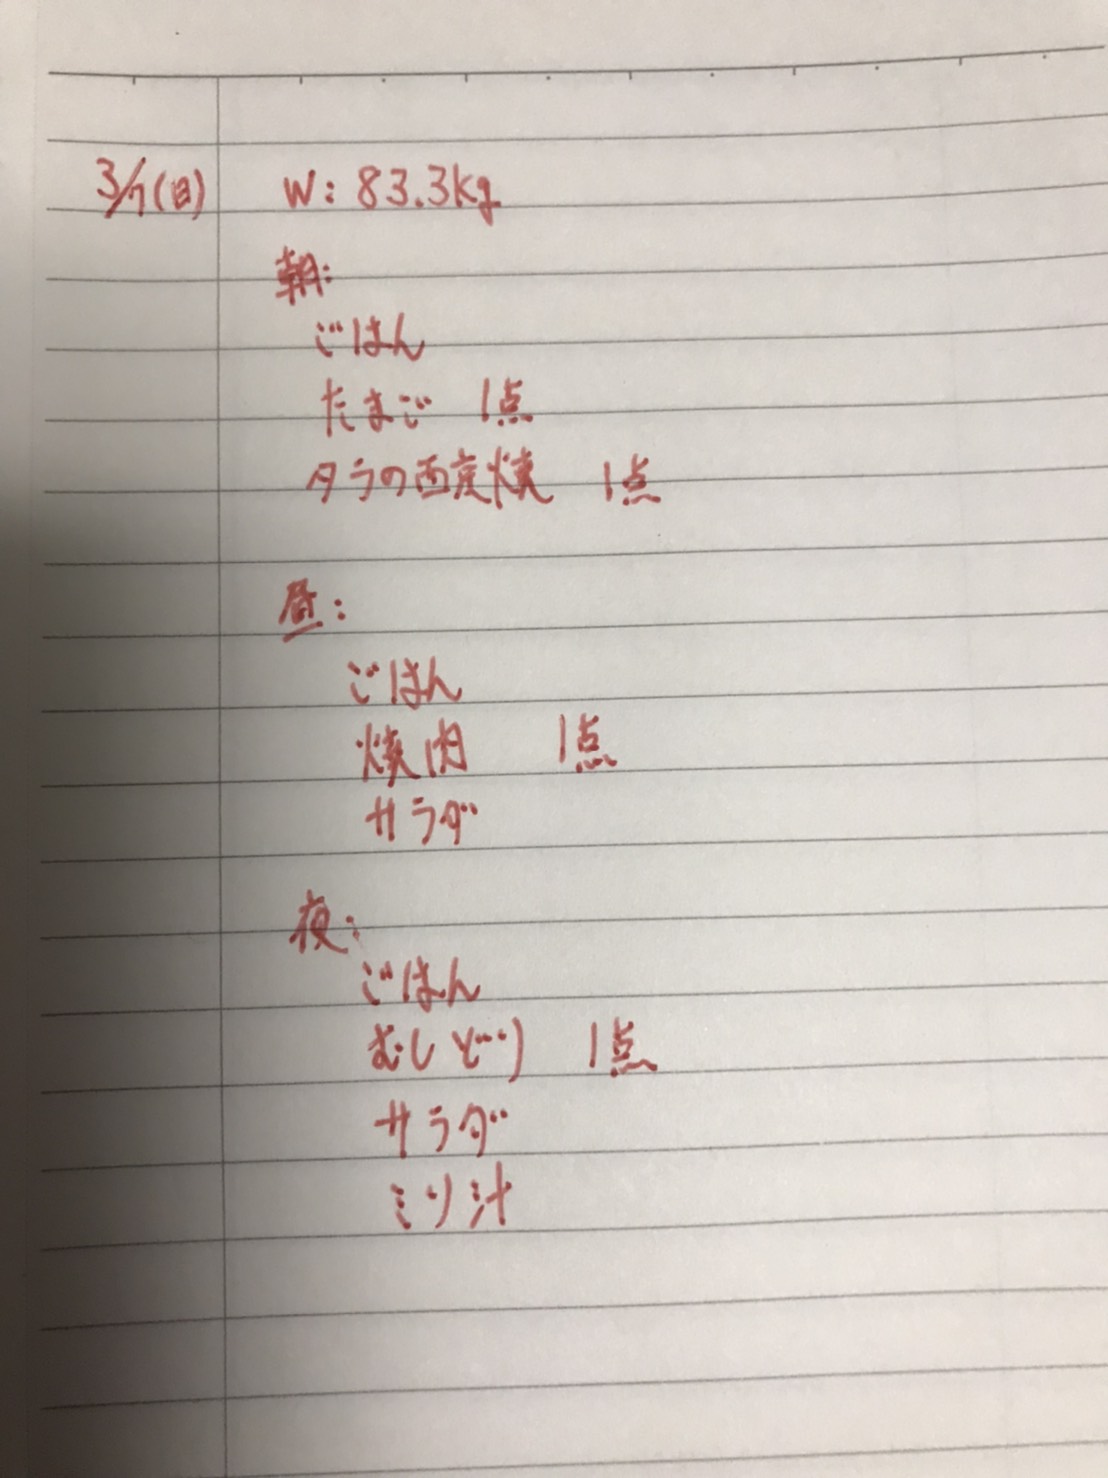 3/7(日) W: 83.3kg
朝:
ごはん
たまご 1点
タラの西京焼 1点
昼:
ごはん
焼肉 1点
サラダ
夜:
ごはん
むしどり 1点
サラダ
ミソ汁